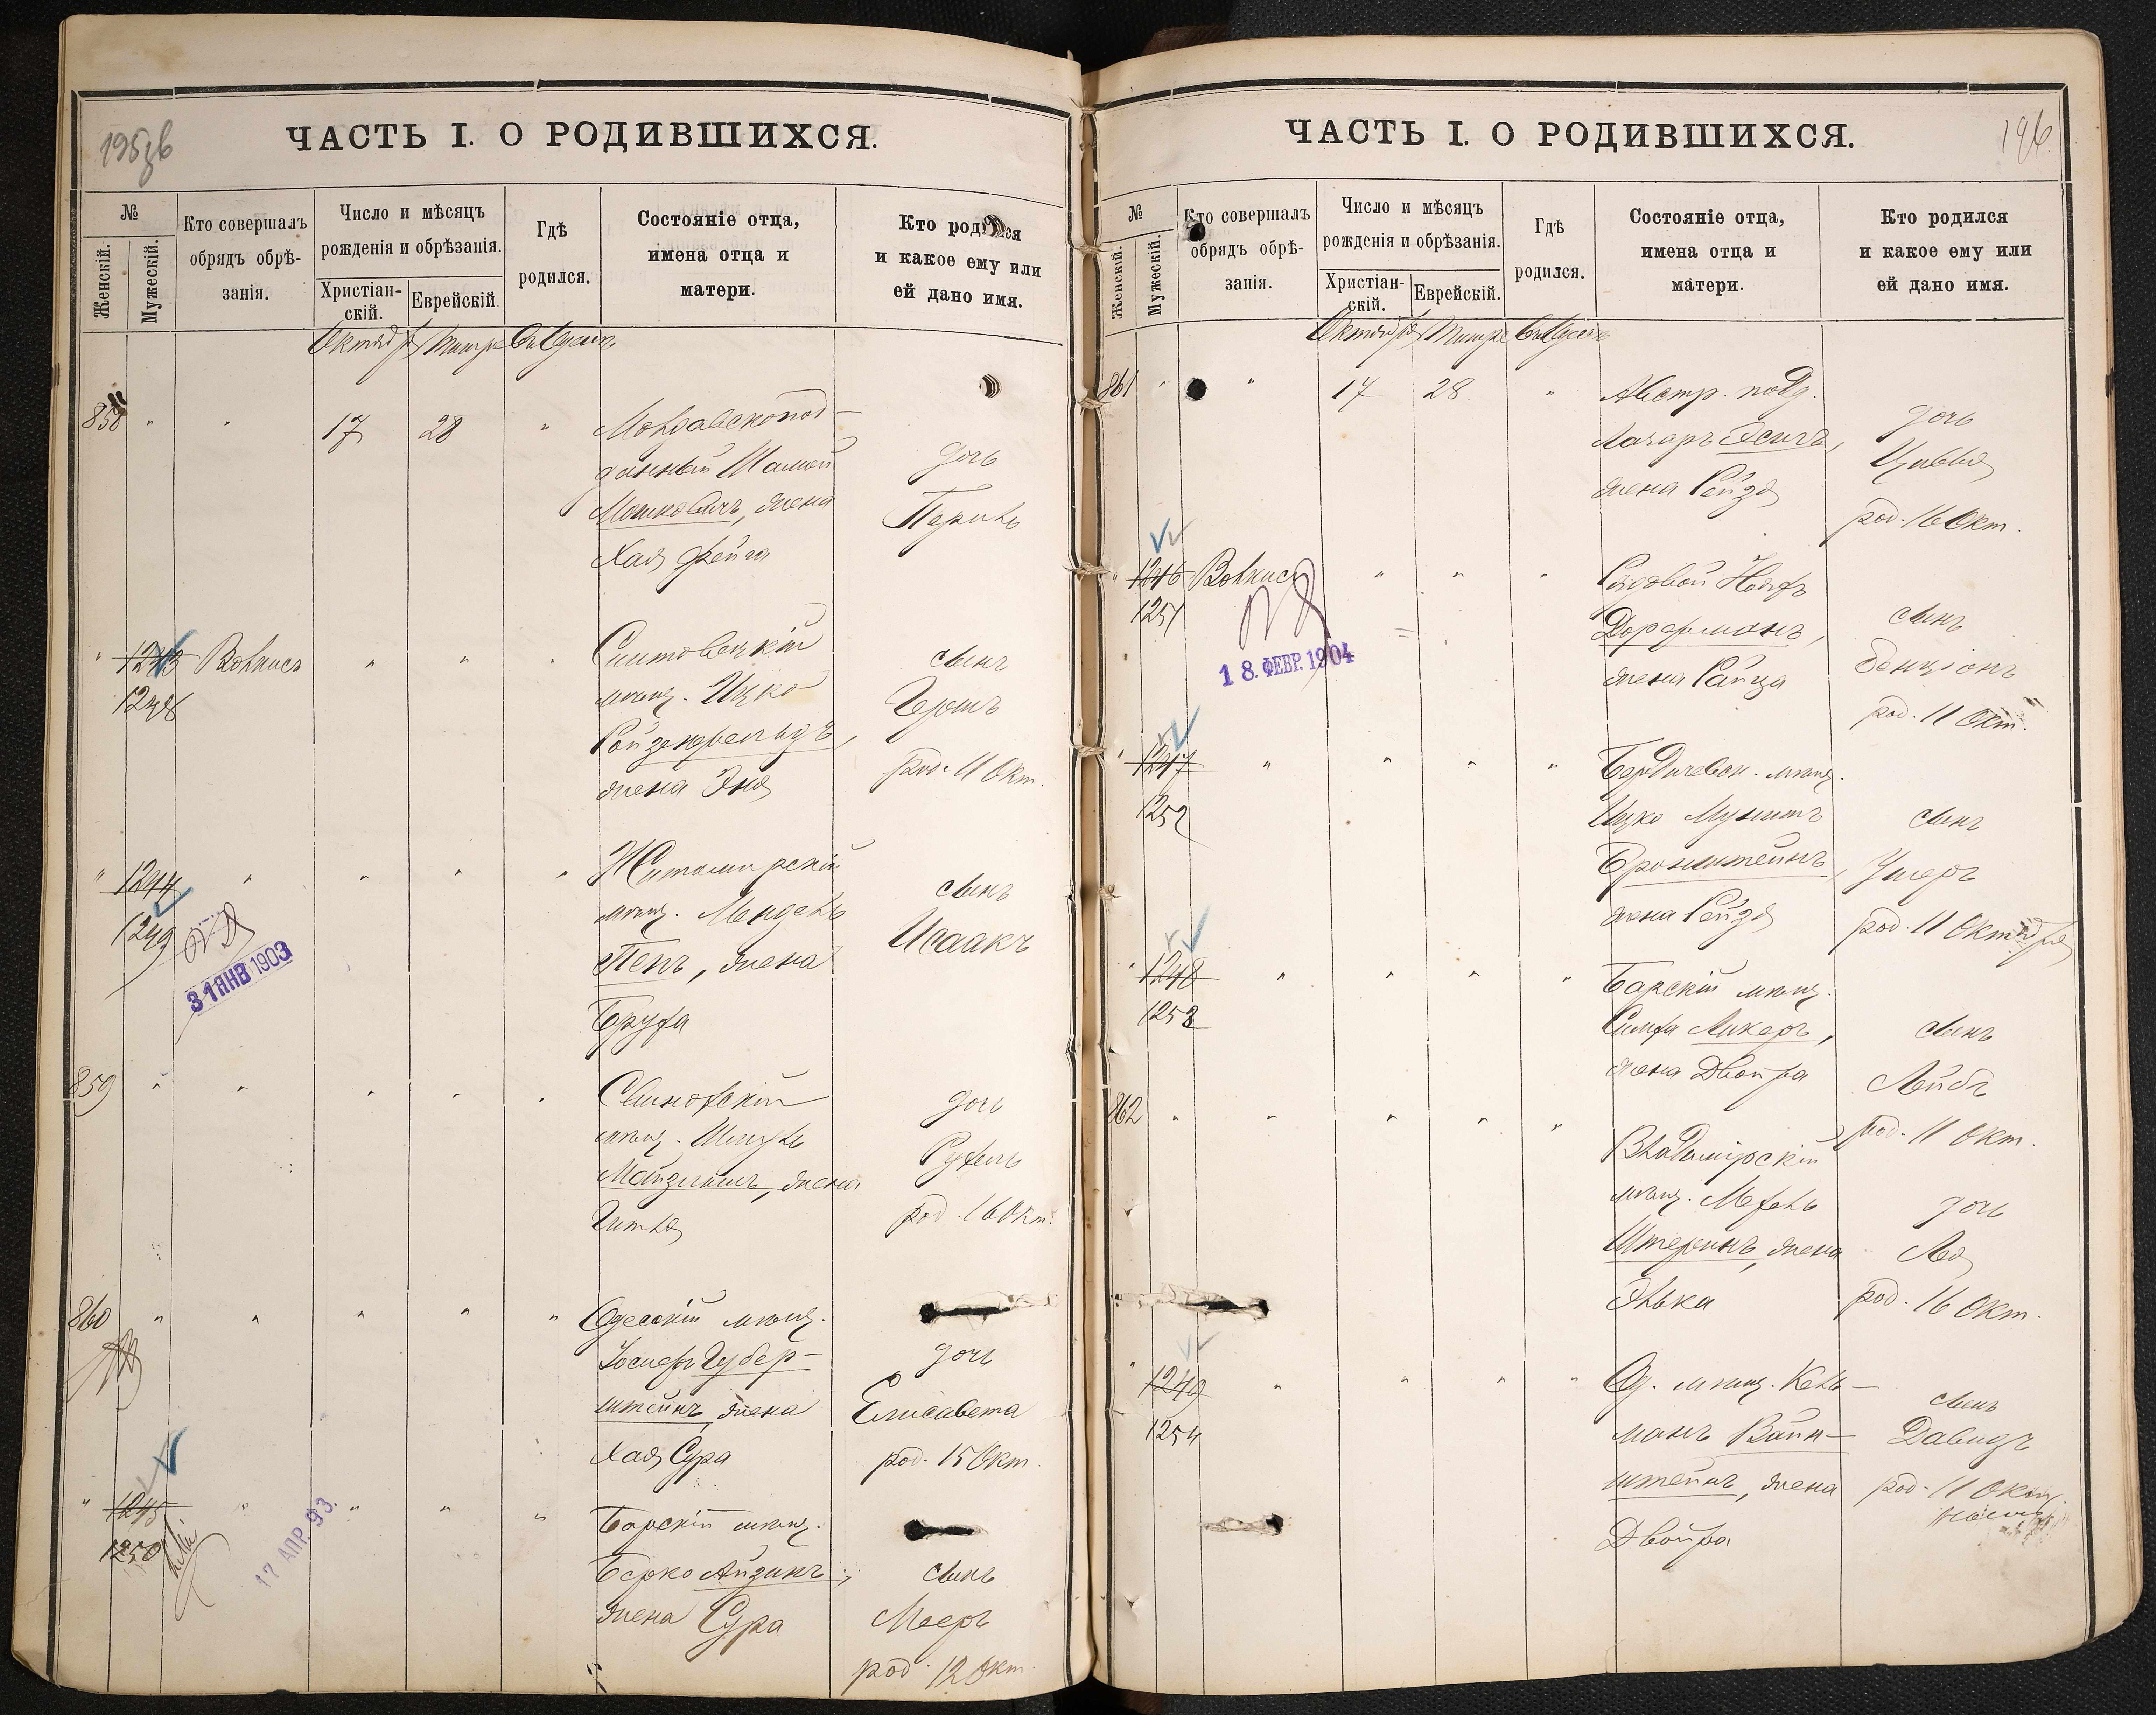 195об
ЧАСТЬ I. О РОДИВШИХСЯ.
№
Женскій.
Мужескій.
Кто совершалъ
обрядъ обрѣ-
занія.
Число и мѣсяцъ
рожденія и обрѣзанія.
Христіан-
скій.
Еврейскій.
Гдѣ
родился.
Состояніе отца,
имена отца и
матери.
Кто родился
и какое ему или
ей дано имя.
Октября Тишре Въ Одессѣ
858 " " 17 28 " Молдавскопод-
данный Шамай
Мошковичъ, жена
Хая Фейга
дочь
Перль
" 1243 Волкисъ " " "
1248
мѣщ. Ицко
Ройзенфельдъ,
жена Эня
сынъ
Гершъ
род. 11 Окт.
" 1244 " " " "
1249
31 ЯНВ 1903
Житомирскій
мѣщ. Мендель
Пепъ, жена
Бруха
сынъ
Исаакъ
859 " " " " "
мѣщ. Шмуль
жена
Гитля
дочь
Рухель
род. 16 Окт.
860 " " " " "
Одесскій мѣщ.
Іосифъ Губер-
штейнъ, жена
Хая Сура
дочь
Елисавета
род. 15 Окт.
" 1245 " " " "
1250
17 АПР. 93.
Барскій мѣщ.
Берко Айзинъ,
жена Сура
сынъ
Мееръ
род. 12 Окт.
196
ЧАСТЬ I. О РОДИВШИХСЯ.
№
Женскій.
Мужескій.
Кто совершалъ
обрядъ обрѣ-
занія.
Число и мѣсяцъ
рожденія и обрѣзанія.
Христіан-
скій.
Еврейскій.
Гдѣ
родился.
Состояніе отца,
имена отца и
матери.
Кто родился
и какое ему или
ей дано имя.
Октября Тишре Въ Одессѣ
861 " " 17 28 " Австр. подд.
Лазаръ
жена Рейзя
дочь
Цивья
род. 16 Окт.
" 1246 Волкисъ " " "
1251
18. ФЕВР. 1904
Рядовой
Дорфманъ,
жена Райца
сынъ
Бенціонъ
род. 11 Окт.
" 1247 " " " "
1252
Бердичевск. мѣщ.
Ицко
Бронштейнъ,
жена Рейзя
сынъ
Ушеръ
род. 11 Октября
" 1248 " " " "
1253
Барскій мѣщ.
Симха Ликеръ,
жена Двойра
сынъ
Лейбъ
род. 11 Окт.
862 " " " " "
Владимірскій
мѣщ. Мехель
Штеринъ, жена
Элька
дочь
Лея
род. 16 Окт.
" 1249 " " " "
1254
Од. мѣщ. Кель-
манъ Вайн-
штейнъ, жена
Двойра
сынъ
Давидъ
род. 11 Окт.